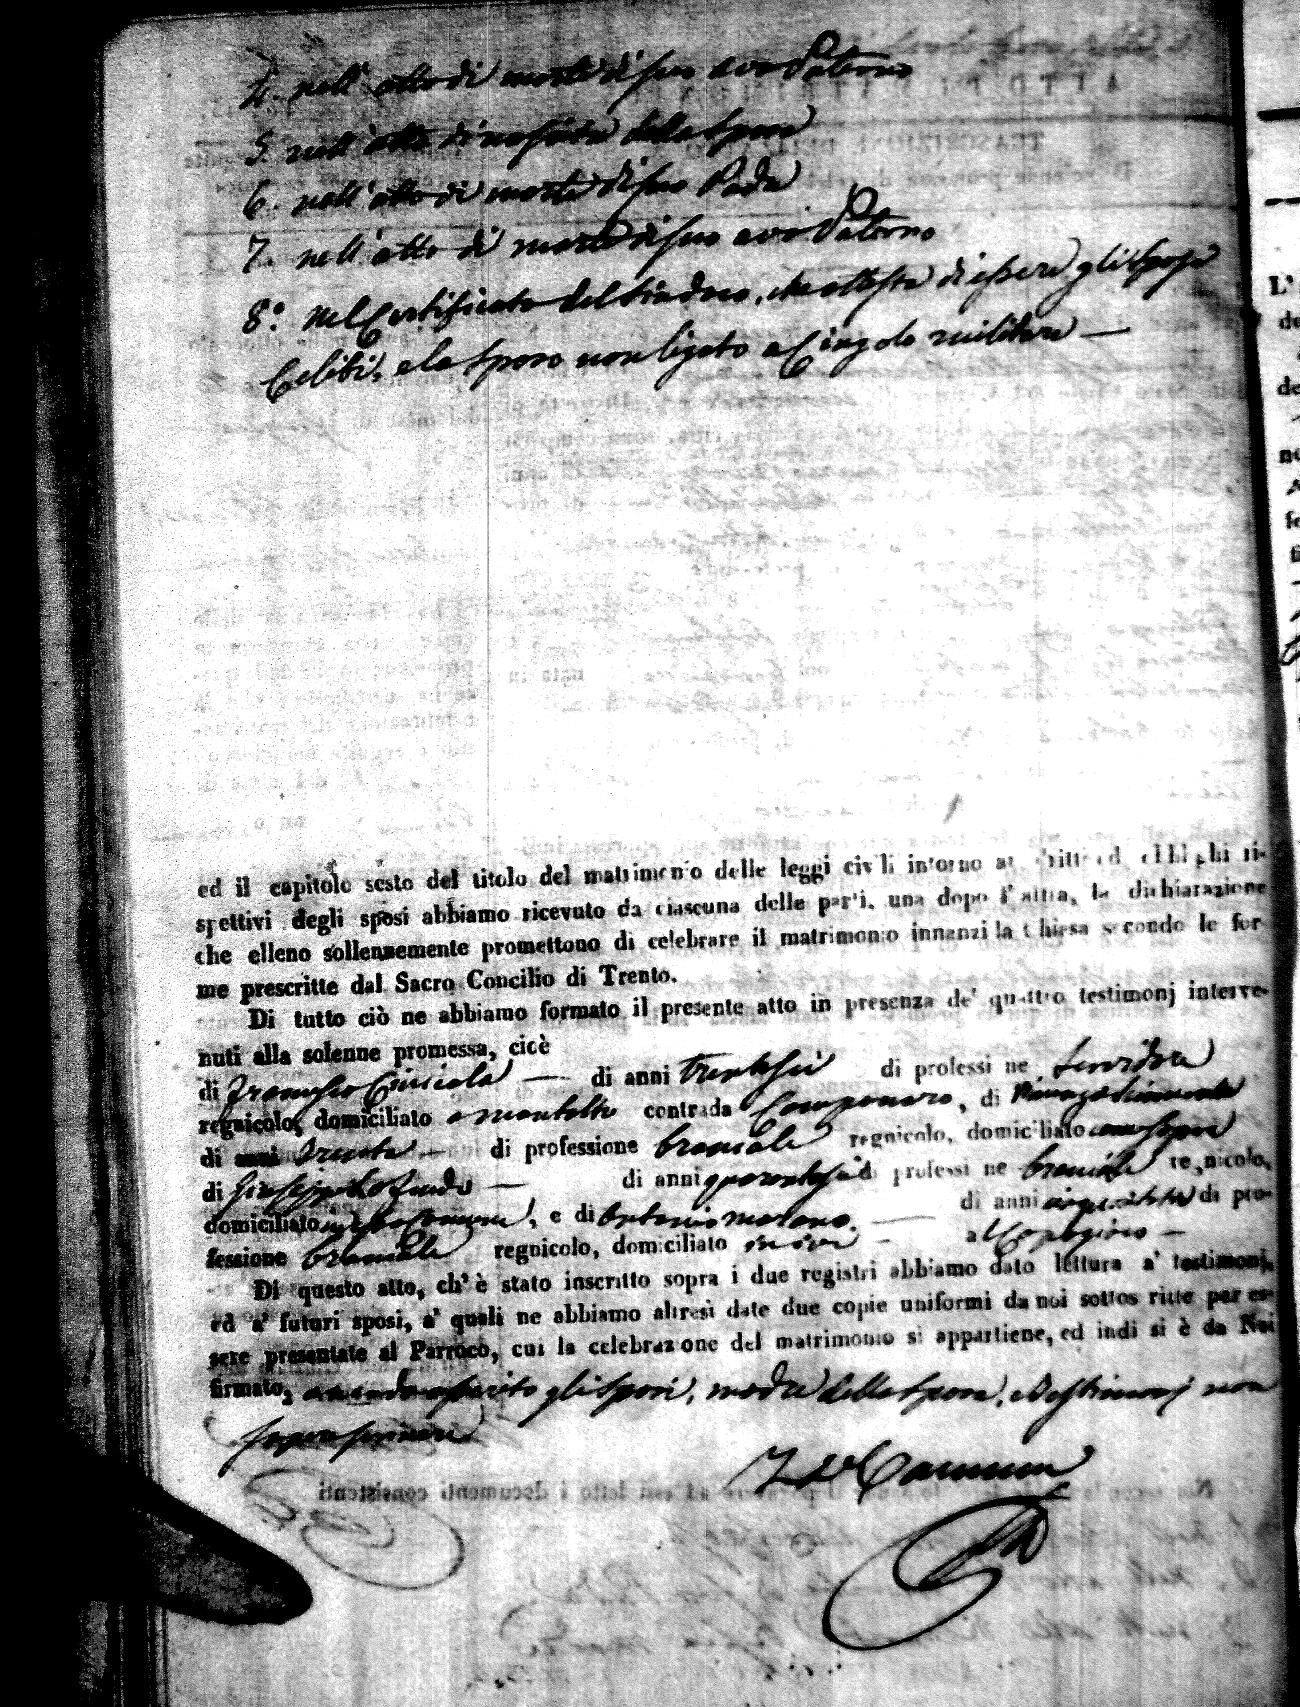 4. nell'atto di morte di suo avo Paterno
5. nell'atto di nascita della sposa
6. nell'atto di morte di suo Padre
7. nell'atto di morte di suo avo Paterno
8.° nel Certificato del Sindaco, che attesta di essere gli sposi
Celibi, e lo sposo non ligato a Cingolo militare —
ed il capitolo sesto del titolo del matrimonio delle leggi civili intorno a' dritti ed obblighi ri-
spettivi degli sposi abbiamo ricevuto da ciascuna delle parti, una dopo l'altra, la dichiarazione
che elleno sollennemente promettono di celebrare il matrimonio innanzi la Chiesa secondo le for-
me prescritte dal Sacro Concilio di Trento.
Di tutto ciò ne abbiamo formato il presente atto in presenza de' quattro testimonj interve-
nuti alla solenne promessa, cioè
di Francesco — di anni trentasei di professi ne servidore
regnicolo, domiciliato a montalto contrada, di
di anni Trenta — di professione bracciale regnicolo, domiciliato come sopra
di Giuseppe — di anni quarantasei di professi ne bracciale regnicolo,
domiciliato, e di Antonio — di anni di pro-
fessione bracciale regnicolo, domiciliato —
Di questo atto, ch' è stato inscritto sopra i due registri abbiamo dato lettura a' testimonj,
ed a' futuri sposi, a' quali ne abbiamo altresì date due copie uniformi da noi sottoscritte per es-
sere presentate al Parroco, cui la celebrazione del matrimonio si appartiene, ed indi si è da Noi
firmato, avendo asserito gli sposi, madre della sposa, e testimonj non
saper scrivere